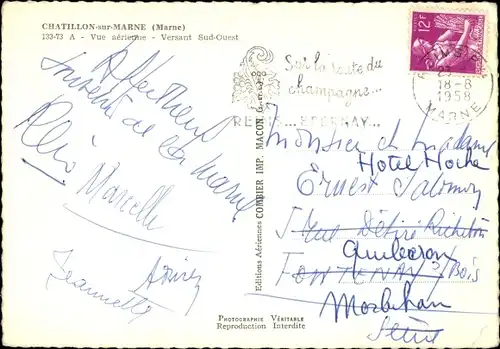 CHATILLON-sur-MARNE (Marne)
133-73 A - Vue aérienne - Versant Sud-Ouest
12F
18-8
1958
MARNE
Sur la route du
champagne...
REIMS... EPERNAY...
Affectueux
souvenir de la Marne
Marcelle
Jeannette
Editions Aériennes COMBIER IMP. MACON
Monsieur et Madame
Hotel Hoche
Ernest Salomon
5 rue Désiré Richebois
Quiberon
FONTENAY s/Bois
Morbihan
Seine
PHOTOGRAPHIE VÉRITABLE
Reproduction Interdite